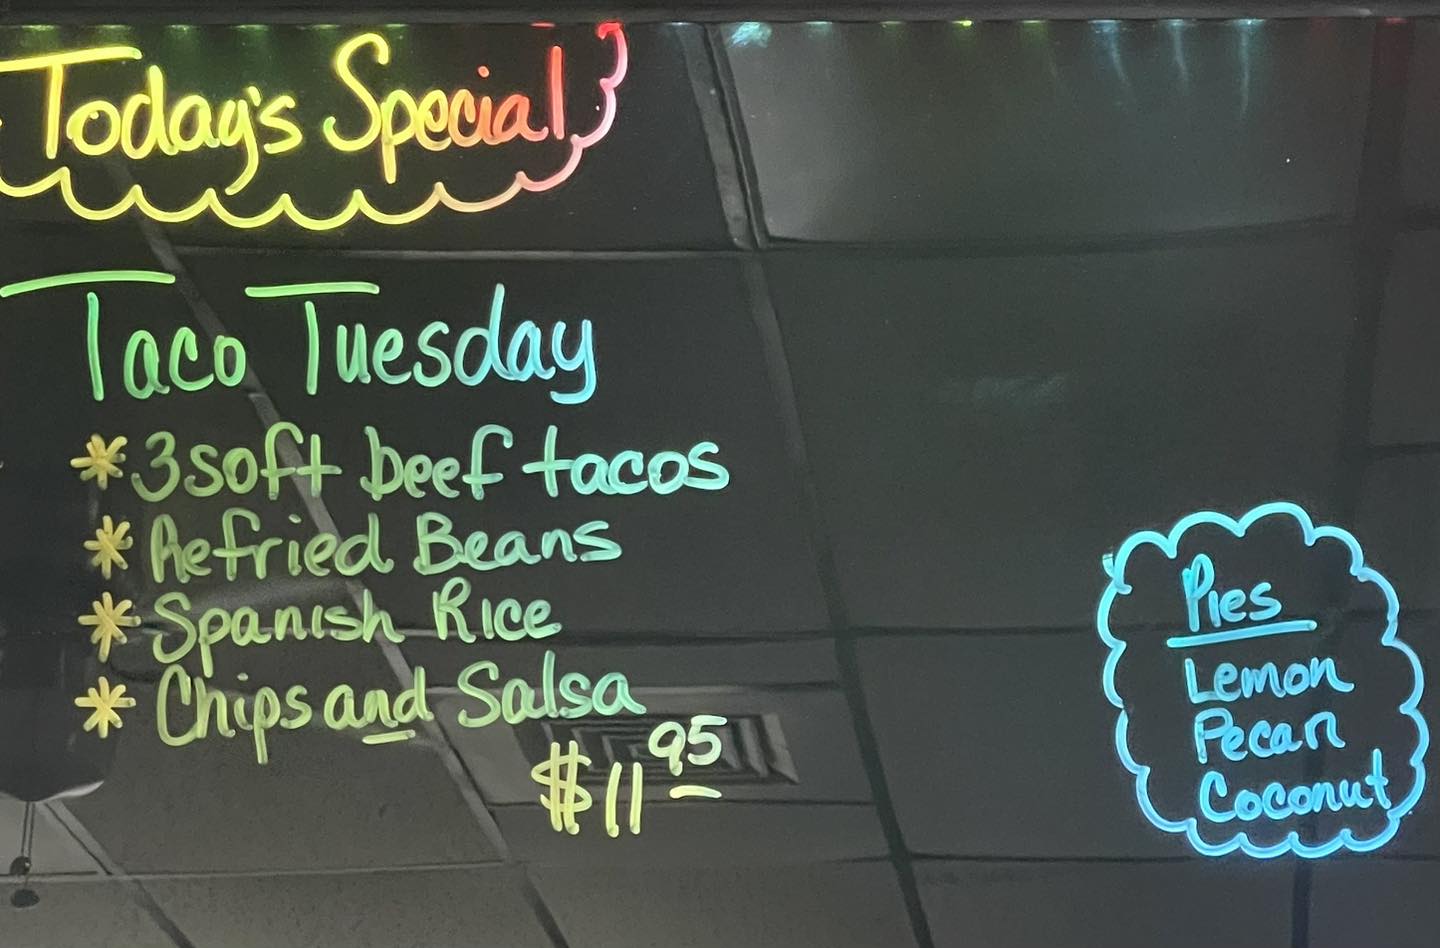 Today's Special
Taco Tuesday
* 3 soft beef tacos
* Refried Beans
* Spanish Rice
* Chips and Salsa
$11 95
Pies
Lemon
Pecan
Coconut